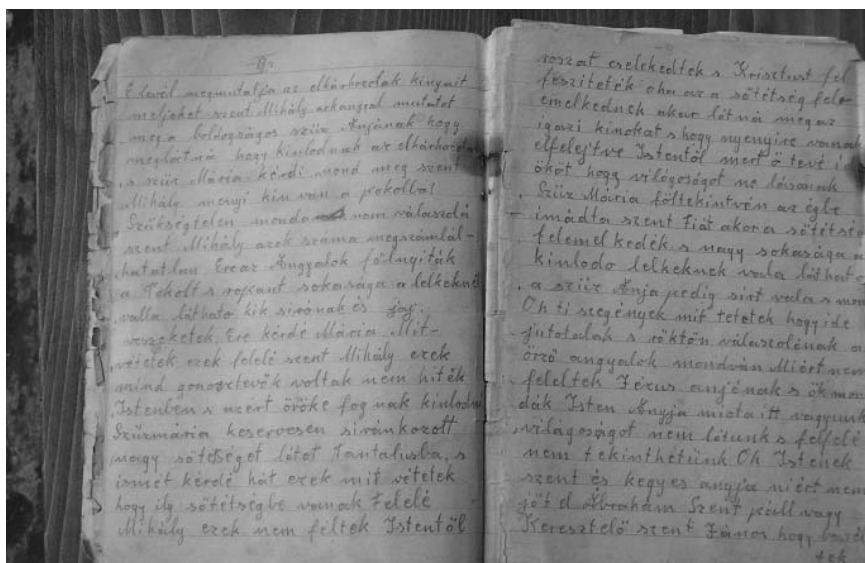 -II-
E levél megmutatja az elkárhozotak kinyait
meljeket szent Mihály arkangyal mutatot
meg a boldogságos szüz Anjának hogy
meglátná hogy kinlodnak az elkárhozotak
s szüz Mária kérdi mond meg szent
Mihály menyi kin ván a pokolbal
Szükségtelen monda nom válaszolá
szent Mihály azok száma megszámlál-
hatatlan Ereaz Angyalok fölnyiták
a Pokolt s ropant sokasága a lelkeknél
valla látható kik sirának és jaj
veszeketek. Ere kérdé Mária Mit-
vétetek ezek felelé szent Mihály ezek
mind gonosztevők voltak nem hiték
Istenben s azért öröke fog nak kinlodni
Szüzmária keservesen siránkozott
nagy sötétséget látot Tantalusba, s
ismét kérdé hát ezek mit vétetek
hogy ily sötétségbe vannak Felelé
Mihály ezek nem féltek Istentől
roszat cselekedtek s Krisztust fel
feszitetek oha az a sötétség fele
emelkednek akar látná meg az
igazi kinokat s hogy nyenyire vannak
elfelejtve Istentől mert ő tevé i
ököt hogy világoságot ne lásanak
Szüz Mária föltekintvén az égbe
imádta szent Fiát akor a sötétség
felemelkedék s nagy sokasága a
kinlodo lelkeknek vala látható
a szüz Anja pedig sirt vala s mon
Oh ti szegények mit tetetek hogy ide
jutotalak s röktön válaszolénak a
örző angyalok mondván Miért nem
feleltek Jézus anjénak s ök mon
dák Isten Anyja miota itt vagyunk
világoságot nem látunk s felfelé
nem tekinthétünk Oh Istenek
szent és kegyes angja miért nem
jöt el Ábrahám Szent páll vagy
Keresztelő szent János hogy
tek